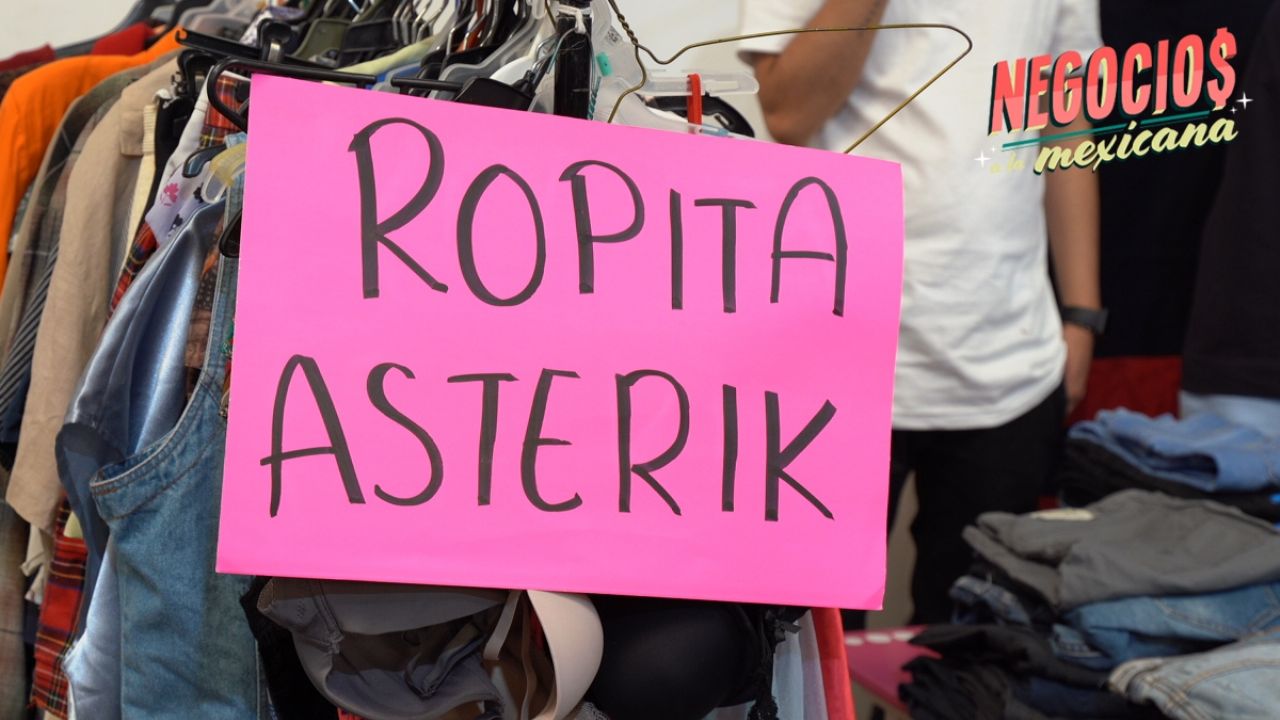 NEGOCIO$
a la mexicana
ROPITA
ASTERIK